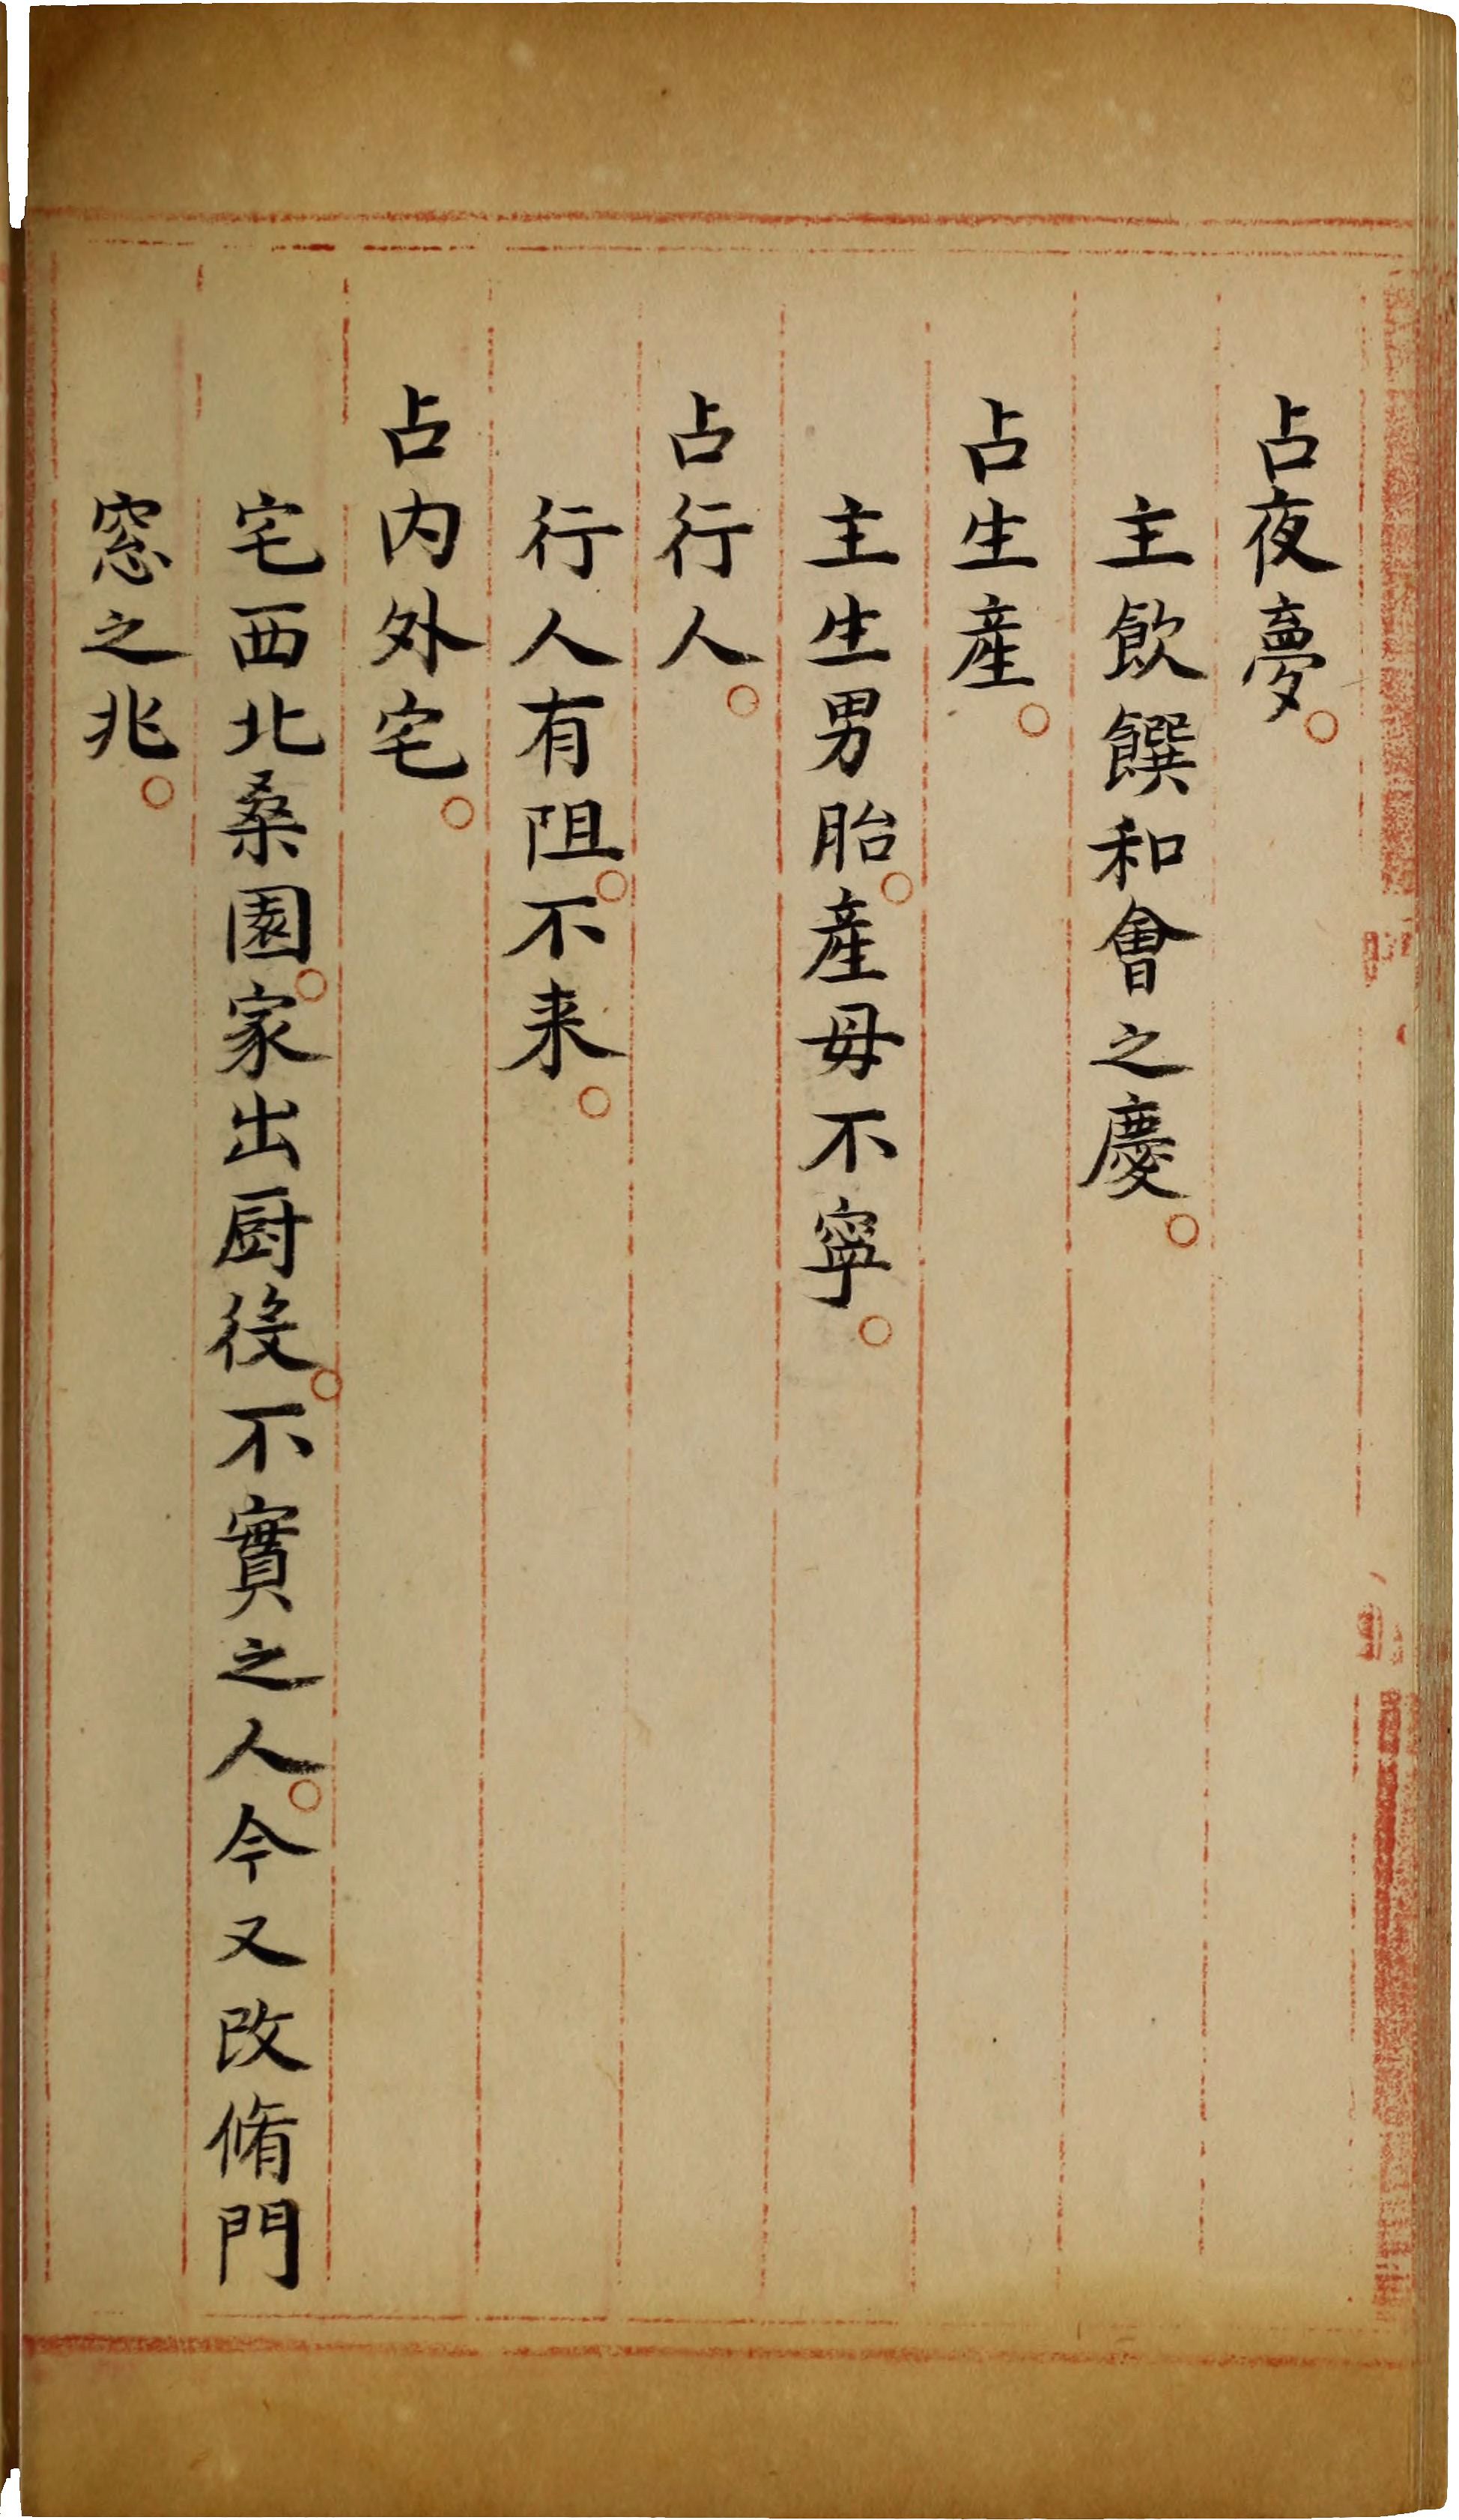 占夜夢。
主飲饌和會之慶。
占生產。
主生男胎。產母不寧。
占行人。
行人有阻。不来。
占内外宅。
宅西北桑園。家出厨役。不實之人。今又改脩門
窓之兆。